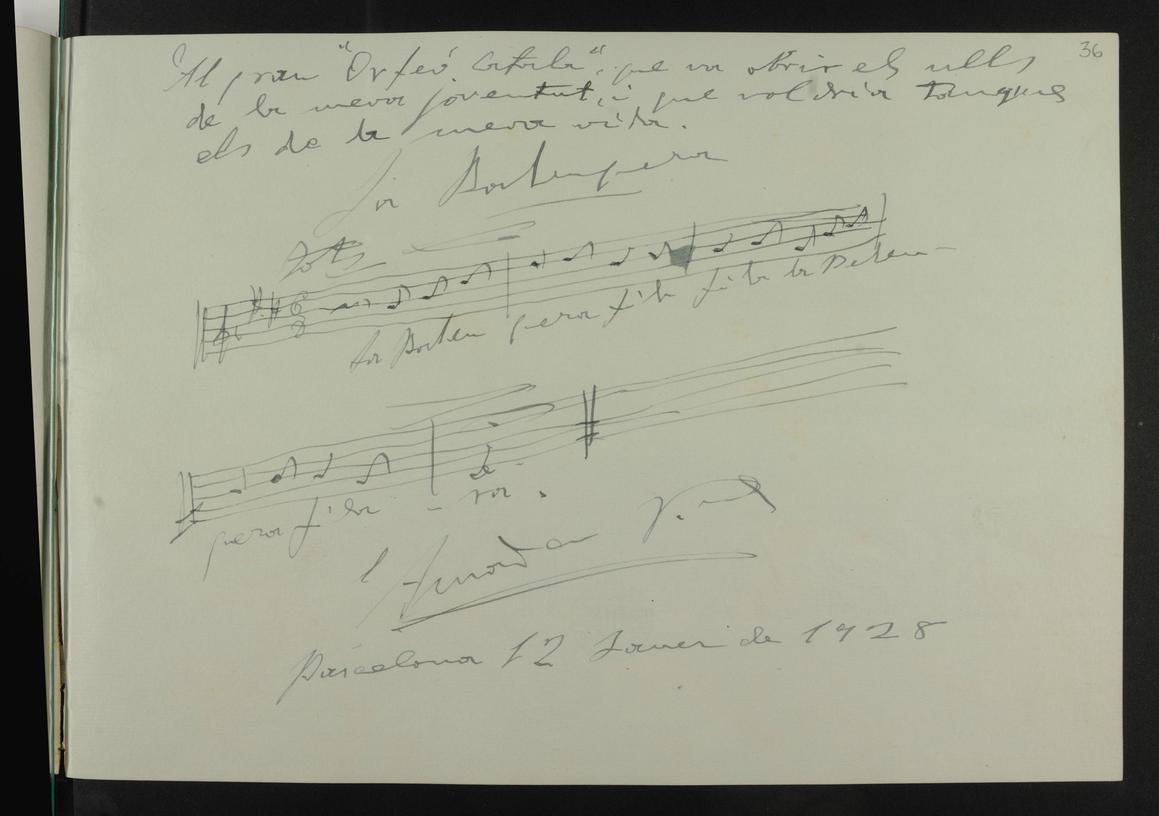 36
Al gran "Orfeó Català", que va obrir els ulls
de la meva joventut, i que voldria tanqués
els de la meva vida.
La Balenguera
Tots
La Balen guera fila fila la Balen -
guera fila - rà.
Amadeu Vives
Barcelona 12 Janer de 1928